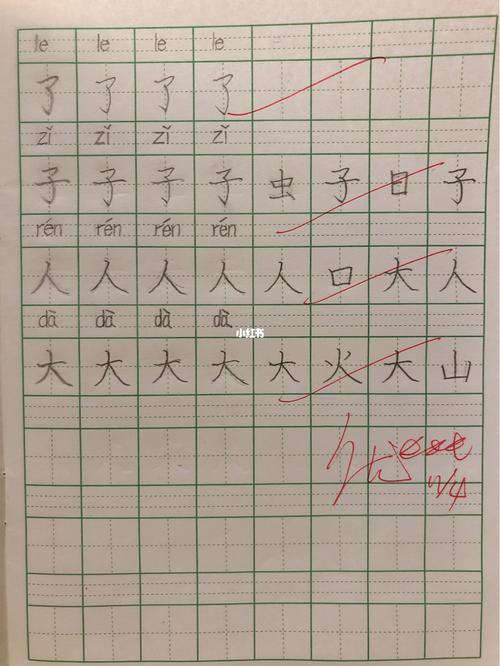 le le le le
了 了 了 了
zǐ zǐ zǐ zǐ
子 子 子 子 虫 子 日 子
rén rén rén rén
人 人 人 人 人 口 大 人
dà dà dà dà
小红书
大 大 大 大 大 火 大 山
优
11/4